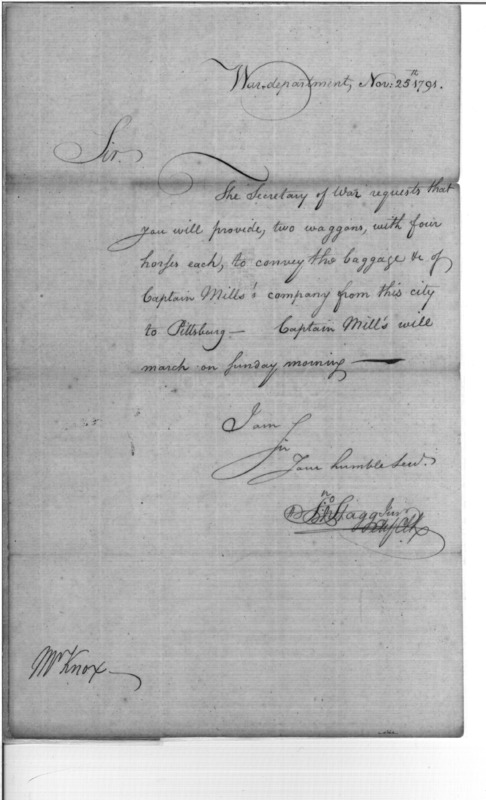 War department, Nov: 25th 1791.
Sir.
The Secretary of War requests that
you will provide, two waggons, with four
horses each, to convey the baggage &c of
Captain Mills's company from this city
to Pittsburg— Captain Mill's will
march on Sunday morning—
I am
Sir
Your humble Servt.
Jno Stagg Junr
Mr Knox